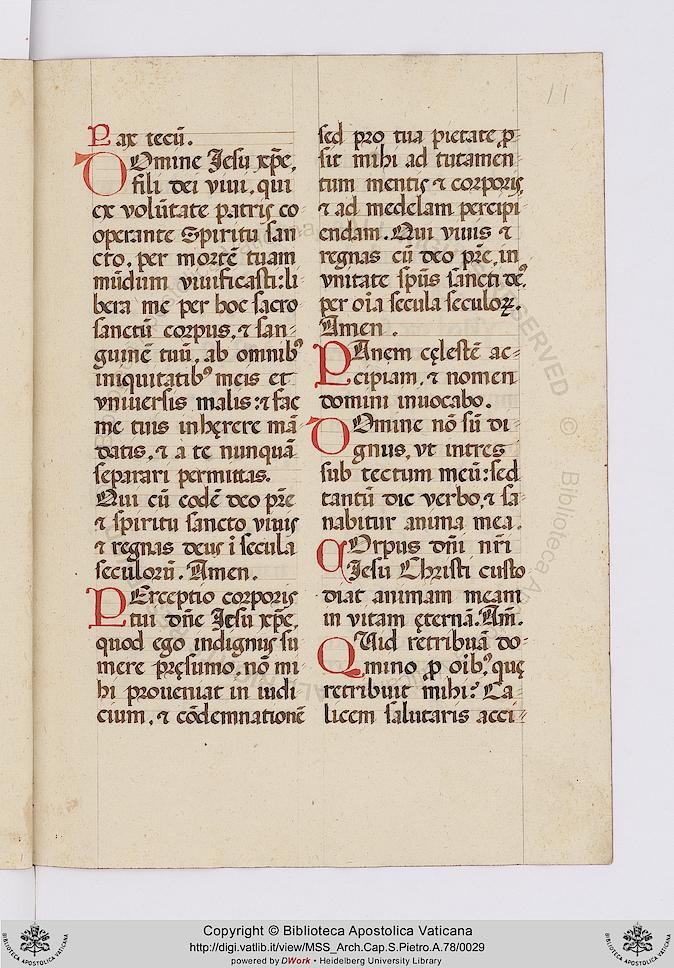 11
Pax tecū.
DOmine Jesu xp̄e,
fili dei viui, qui
ex volūtate patris co
operante Spiritu san
cto, per mortē tuam
mūdum viuificasti: li
bera me per hoc sacro
sanctū corpus, ⁊ san-
guinē tuū, ab omnibꝰ
iniquitatibꝰ meis et
vniuersis malis: ⁊ fac
me tuis inhęrere mā
datis, ⁊ a te nunquā
separari permittas.
Qui cū eodē deo pr̄e
⁊ spiritu sancto viuis
⁊ regnas deus ī secula
seculorū. Amen.
PErceptio corporis
tui dn̄e Jesu xp̄e,
quod ego indignus su
mere pręsumo, nō mi
hi proueniat in iudi
cium, ⁊ cōdemnationē
sed pro tua pietate ꝓ-
sit mihi ad tutamen-
tum mentis ⁊ corporis
⁊ ad medelam percipi
endam. Qui viuis ⁊
regnas cū deo pr̄e, in
vnitate sp̄us sancti deꝰ,
per oīa secula seculoꝝ.
Amen.
PAnem cęlestē ac-
cipiam, ⁊ nomen
domini inuocabo.
DOmine nō sū di
gnus, vt intres
sub tectum meū: sed
tantū dic verbo, ⁊ sa
nabitur anima mea.
COrpus dn̄i nr̄i
Jesu Christi custo
diat animam meam
in vitam ęternā. Am̄.
QUid retribuā do-
mino ꝓ oībꝰ, quę
retribuit mihi? Ca
licem salutaris acci-
Copyright © Biblioteca Apostolica Vaticana
http://digi.vatlib.it/view/MSS_Arch.Cap.S.Pietro.A.78/0029
powered by DWork • Heidelberg University Library